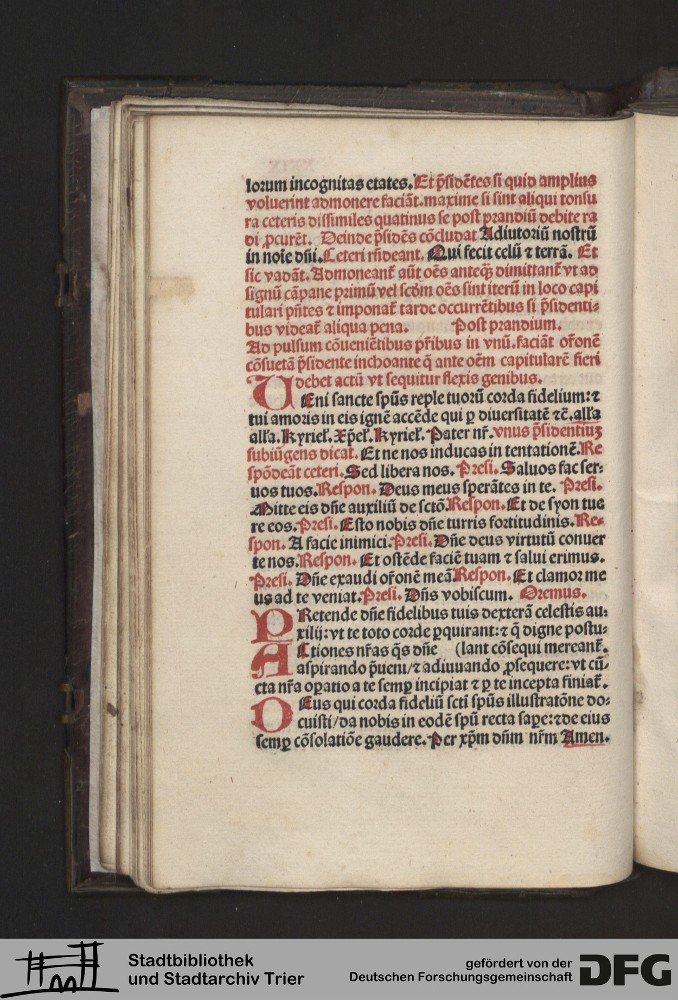 lorum incognitas etates. Et p̄sidētes si quid amplius
voluerint admonere faciāt. maxime si sint aliqui tonsu
ra ceteris dissimiles quatinus se post prandiū debite ra
di ꝓcurēt. Deinde p̄sidēs cōcludat Adiutoriū nostrū
in noīe dn̄i. Ceteri rn̄deant. Qui fecit celū ⁊ terrā. Et
sic vadāt. Admoneant᷑ aūt oēs anteqꝫ dimittant᷑ vt ad
signū cāpane primū vel scd̄m oēs sint iterū in loco capi
tulari pn̄tes ⁊ imponat᷑ tarde occurrētibus si p̄sidenti-
bus videat᷑ aliqua pena. Post prandium.
Ad pulsum cōueniētibus pr̄ibus in vnū. faciāt or̄onē
cōsuetā p̄sidente inchoante q̄ ante oēm capitularē fieri
debet actū vt sequitur flexis genibus.
VEni sancte spūs reple tuorū corda fidelium: ⁊
tui amoris in eis ignē accēde qui ꝑ diuersitatē ⁊c̄. alla
alla. Kyriel᷑. Xp̄el᷑. Kyriel᷑. Pater nr̄. vnus p̄sidentiuꝫ
subiūgens dicat. Et ne nos inducas in tentationē. Re
spōdeāt ceteri. Sed libera nos. Presi. Saluos fac ser-
uos tuos. Respon. Deus meus sperātes in te. Presi.
Mitte eis dn̄e auxiliū de sctō. Respon. Et de syon tue
re eos. Presi. Esto nobis dn̄e turris fortitudinis. Re-
spon. A facie inimici. Presi. Dn̄e deus virtutū conuer
te nos. Respon. Et ostēde faciē tuam ⁊ salui erimus.
Presi. Dn̄e exaudi or̄onē meā Respon. Et clamor me
us ad te veniat. Presi. Dn̄s vobiscum. Oremus.
PRetende dn̄e fidelibus tuis dexterā celestis au-
xilij: vt te toto corde ꝑquirant: ⁊ q̄ digne postu-
ACtiones nr̄as q̄s dn̄e (lant cōsequi mereant᷑.
aspirando p̄ueni/ ⁊ adiuuando ꝓsequere: vt cū-
cta nr̄a oꝑatio a te semꝑ incipiat ⁊ ꝑ te incepta finiat᷑.
DEus qui corda fideliū scti spūs illustratōne do-
cuisti/ da nobis in eodē spū recta saꝑe: ⁊ de eius
semꝑ cōsolatiōe gaudere. Per xp̄m dn̄m nr̄m Amen.
Stadtbibliothek
und Stadtarchiv Trier
gefördert von der
Deutschen Forschungsgemeinschaft
DFG